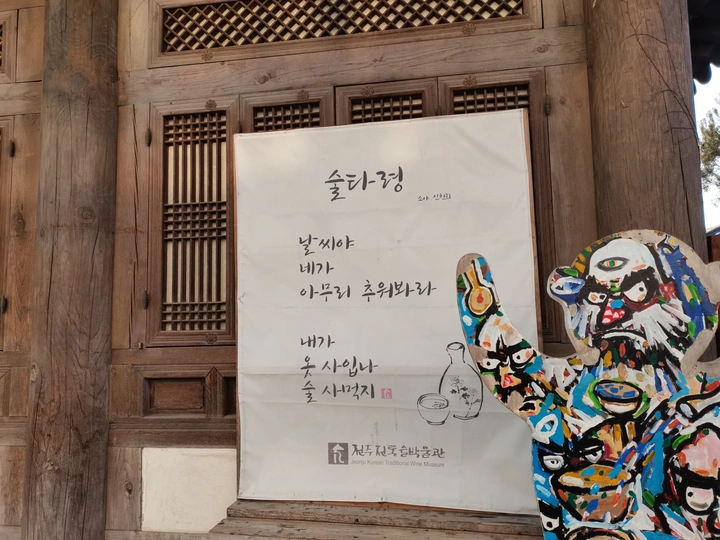 술타령
소야 신천희
날씨야
네가
아무리 추워봐라
내가
옷 사입나
술 사먹지
전주전통술박물관
Jeonju Korean Traditional Wine Museum